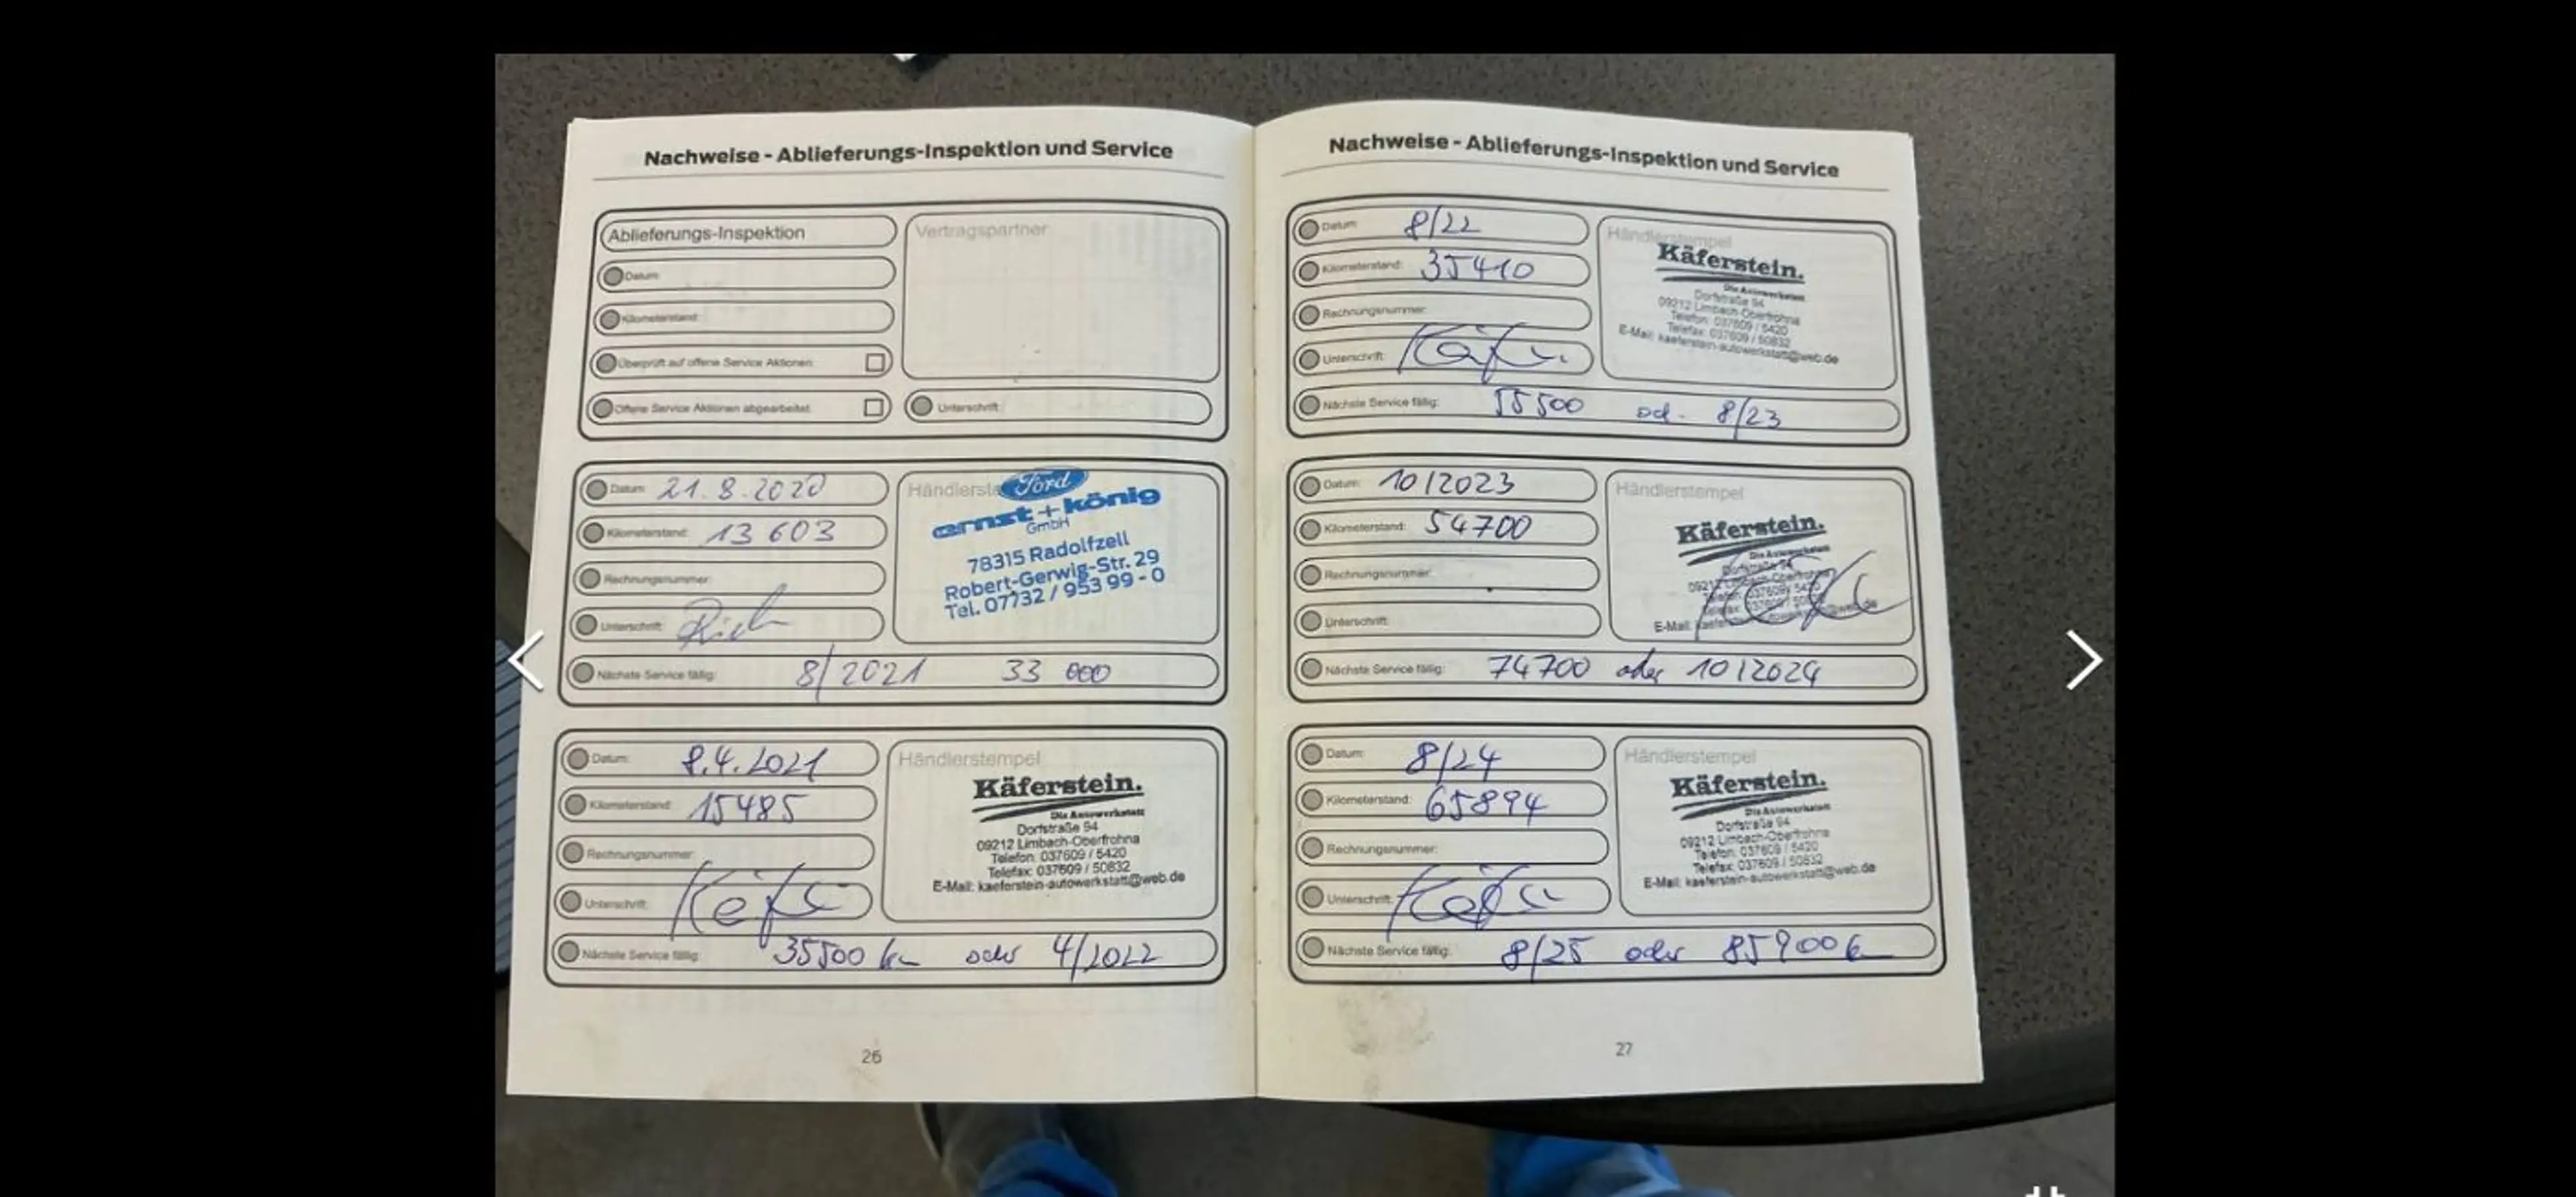 Nachweise - Ablieferungs-Inspektion und Service
Ablieferungs-Inspektion
Vertragspartner
Datum:
Kilometerstand:
Überprüft auf offene Service Aktionen:
Offene Service Aktionen abgearbeitet:
Unterschrift:
Datum: 21.8.2020
Kilometerstand: 13 603
Rechnungsnummer:
Unterschrift:
Händlerste
Ford
ernst + könig
GmbH
78315 Radolfzell
Robert-Gerwig-Str. 29
Tel. 07732 / 953 99 - 0
Nächste Service fällig: 8/2021 33 000
Datum: 8.4.2021
Kilometerstand: 15485
Rechnungsnummer:
Unterschrift:
Händlerstempel
Käferstein.
Die Autowerkstatt
Dorfstraße 94
09212 Limbach-Oberfrohna
Telefon: 037609 / 5420
Telefax: 037609 / 50832
E-Mail: kaeferstein-autowerkstatt@web.de
Nächste Service fällig: 35500 km oder 4/2022
26
Nachweise - Ablieferungs-Inspektion und Service
Datum: 8/22
Kilometerstand: 35410
Rechnungsnummer:
Unterschrift:
Händlerstempel
Käferstein.
Die Autowerkstatt
Dorfstraße 94
09212 Limbach-Oberfrohna
Telefon: 037609 / 5420
Telefax: 037609 / 50832
E-Mail: kaeferstein-autowerkstatt@web.de
Nächste Service fällig: 55500 od. 8/23
Datum: 10/2023
Kilometerstand: 54700
Rechnungsnummer:
Unterschrift:
Händlerstempel
Käferstein.
Die Autowerkstatt
Dorfstraße 94
09212 Limbach-Oberfrohna
E-Mail:
Nächste Service fällig: 74700 oder 10/2024
Datum: 8/24
Kilometerstand: 65894
Rechnungsnummer:
Unterschrift:
Händlerstempel
Käferstein.
Die Autowerkstatt
Dorfstraße 94
09212 Limbach-Oberfrohna
Telefon: 037609 / 5420
Telefax: 037609 / 50832
E-Mail: kaeferstein-autowerkstatt@web.de
Nächste Service fällig: 8/25 oder 85900 k
27